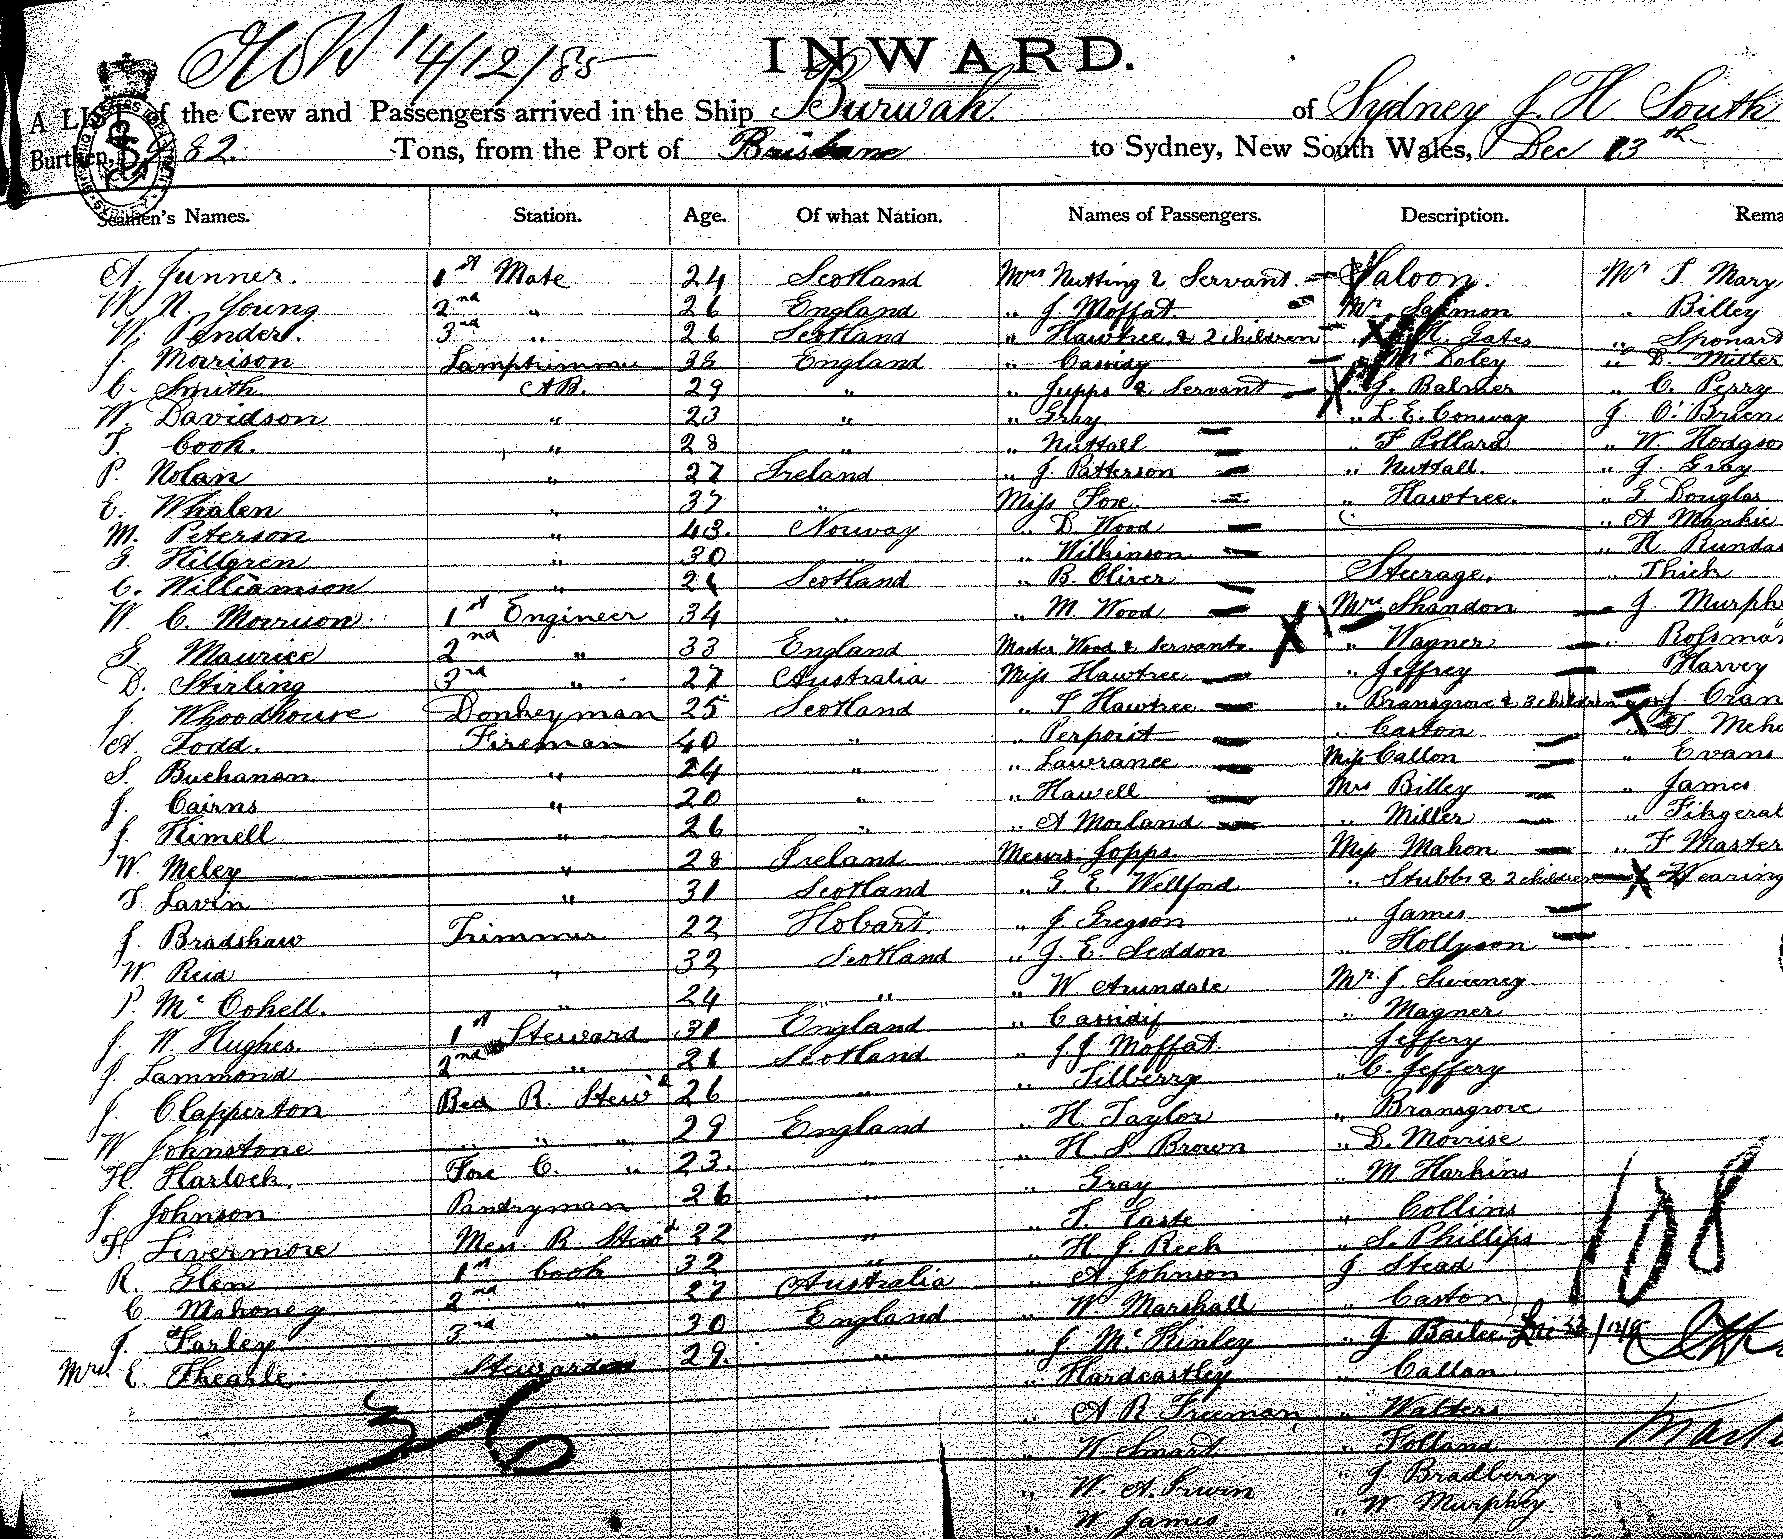 14/12/85
INWARD.
A LIST of the Crew and Passengers arrived in the Ship Burwah of Sydney J. H. South
Burthen, 982. Tons, from the Port of Brisbane to Sydney, New South Wales, Dec 13th
Seamen's Names. Station. Age. Of what Nation. Names of Passengers. Description. Rema
A. Junner. 1st Mate 24 Scotland Mrs Nutting & Servant. Saloon. Mr T. Mary
W. N. Young 2nd " 26 England " J Moffat Mr Salmon " Billey
W. Pender. 3rd " 26 Scotland " Hawtree & 2 children Gates " Sponard
J. Morrison Lamptrimmer 38 England " Cassidy " McDoley " D. Miller
C. Smith AB. 29 " " Jupps & Servant " J. Balmer " C. Perry
W. Davidson " 23 " " Gray " L. E. Conway J. O'Brien
T. Cook. " 28 " " Nuttall " F Pollard " W. Hodgso
P. Nolan " 27 Ireland " J. Patterson " Nuttall. " J. Gray
E. Whalen " 37 " Miss Fox. " Hawtree. " G Douglas
M. Peterson " 43. Norway " D. Wood " A Mankie
G. Hillgren " 30 " " Wilkinson " H. Rundas
C. Williamson " 26 Scotland " B. Oliver Steerage. " Thick
W. C. Morrison 1st Engineer 34 " " M. Wood Mrs Shandon " J. Murph
G Maurice 2nd " 33 England Master Wood & Servants. " Wagner " Rossman
D. Stirling 3rd " 27 Australia Miss Hawtree " Jeffrey Harvey
J. Whoodhouse Donkeyman 25 Scotland " F Hawtree " Bransgrove & 3 children J Cran
A. Todd. Fireman 40 " " Perpoint " Caston " T. Meh
S. Buchanan " 24 " " Lawrance Miss Callon " Evans
J. Cairns " 20 " " Hawell Mrs Billey " James
J. Himell " 26 " " A Morland " Miller " Fitzgeral
W. Meley " 28 Ireland Messrs Jopps. Miss Mahon " F Master
T. Lavin " 31 Scotland " G. E. Wellford " Stubbs & 2 children Wearing
J. Bradshaw Trimmer 22 Hobart. " J Gregson " James
W. Reid " 32 Scotland " J. E. Seddon " Hollyson
P. Mc Cohell. " 24 " " W Arundale Mr. J. Sweeney
J. W Hughes. 1st Steward 31 England " Cassidy " Magner
J. Lammond 2nd " 26 Scotland " J J Moffat Jeffery
J. Clapperton Bed R. Stewd 26 " " Tilberry " C. Jeffery
W Johnstone " " " 29 England " H. Taylor " Bransgrove
H. Harlock. Fore C. " 23. " " H S Brown " D. Morrise
J Johnson Pantryman 26 " " Gray " M Harkins
H. Livermore Mess R. Stewd 22 " " T. Easte " Collins
R. Glen 1st Cook 32 " " H J Reek " S. Phillips
C. Mahoney 2nd " 27 Australia " A Johnson J Stead
J. Farley 3rd " 30 England " W Marshall " Caston
Mrs. E. Thearle. Stewardess 29. " " J. McKinley " J Bailie
" Hardcastley " Callan
" A R Freeman " Walters
" W Smart " Folland
" W. A. Irwin " J Bradberry
" W James " W Murphy
36
108